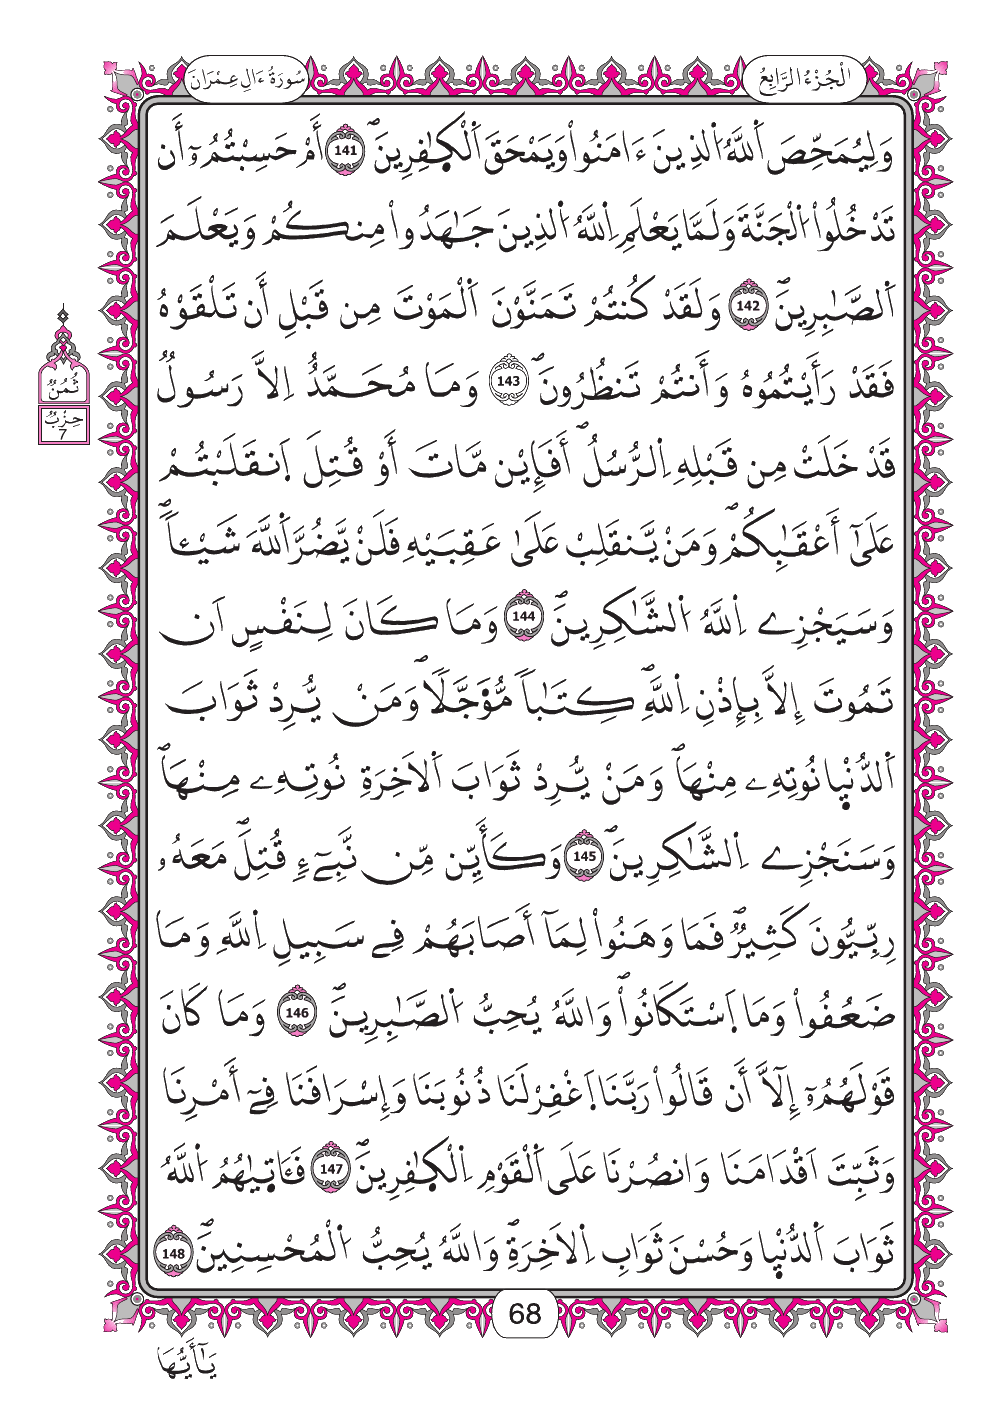 الْجُزْءُ الرَّابِعُ
سُورَةُ ءَالِ عِمْرَانَ
وَلِيُمَحِّصَ اَ۬للَّهُ اُ۬لذِينَ ءَامَنُواْ وَيَمْحَقَ اَ۬لْكٰ۪فِرِينَۖ 141 أَمْ حَسِبْتُمُۥٓ أَن
تَدْخُلُواْ اُ۬لْجَنَّةَ وَلَمَّا يَعْلَمِ اِ۬للَّهُ اُ۬لذِينَ جَٰهَدُواْ مِنكُمْ وَيَعْلَمَ
اَ۬لصَّٰبِرِينَۖ 142 وَلَقَدْ كُنتُمْ تَمَنَّوْنَ اَ۬لْمَوْتَ مِن قَبْلِ أَن تَلْقَوْهُ
فَقَدْ رَأَيْتُمُوهُ وَأَنتُمْ تَنظُرُونَۖ 143 وَمَا مُحَمَّدٌ اِلَّا رَسُولٌ
قَدْ خَلَتْ مِن قَبْلِهِ اِ۬لرُّسُلُۖ أَفَإِيْن مَّاتَ أَوْ قُتِلَ اَ۪نقَلَبْتُمْ
عَلَىٰٓ أَعْقَٰبِكُمْۖ وَمَنْ يَّنقَلِبْ عَلَىٰ عَقِبَيْهِ فَلَنْ يَّضُرَّ اَ۬للَّهَ شَيْـٔاٗۖ
وَسَيَجْزِے اِ۬للَّهُ اُ۬لشَّٰكِرِينَۖ 144 وَمَا كَانَ لِنَفْسٍ اَن
تَمُوتَ إِلَّا بِإِذْنِ اِ۬للَّهِۖ كِتَٰباٗ مُّؤَجَّلاٗۖ وَمَنْ يُّرِدْ ثَوَابَ
اَ۬لدُّنْي۪ا نُوتِهِۦ مِنْهَاۖ وَمَنْ يُّرِدْ ثَوَابَ اَ۬لَاخِرَةِ نُوتِهِۦ مِنْهَاۖ
وَسَنَجْزِے اِ۬لشَّٰكِرِينَۖ 145 وَكَأَيِّن مِّن نَّبِےٓءٖ قُتِلَۖ مَعَهُۥ
رِبِّيُّونَ كَثِيرٞۖ فَمَا وَهَنُواْ لِمَآ أَصَابَهُمْ فِے سَبِيلِ اِ۬للَّهِ وَمَا
ضَعُفُواْ وَمَا اَ۪سْتَكَانُواْۖ وَاللَّهُ يُحِبُّ اُ۬لصَّٰبِرِينَۖ 146 وَمَا كَانَ
قَوْلَهُمُۥٓ إِلَّآ أَن قَالُواْ رَبَّنَا اَ۪غْفِرْ لَنَا ذُنُوبَنَا وَإِسْرَافَنَا فِےٓ أَمْرِنَا
وَثَبِّتَ اَقْدَامَنَا وَانصُرْنَا عَلَى اَ۬لْقَوْمِ اِ۬لْكٰ۪فِرِينَۖ 147 فَـَٔات۪يٰهُمُ اُ۬للَّهُ
ثَوَابَ اَ۬لدُّنْي۪ا وَحُسْنَ ثَوَابِ اِ۬لَاخِرَةِۖ وَاللَّهُ يُحِبُّ اُ۬لْمُحْسِنِينَۖ 148
ثُمُنٌ
حِزْبٌ
7
68
يَٰٓأَيُّهَا